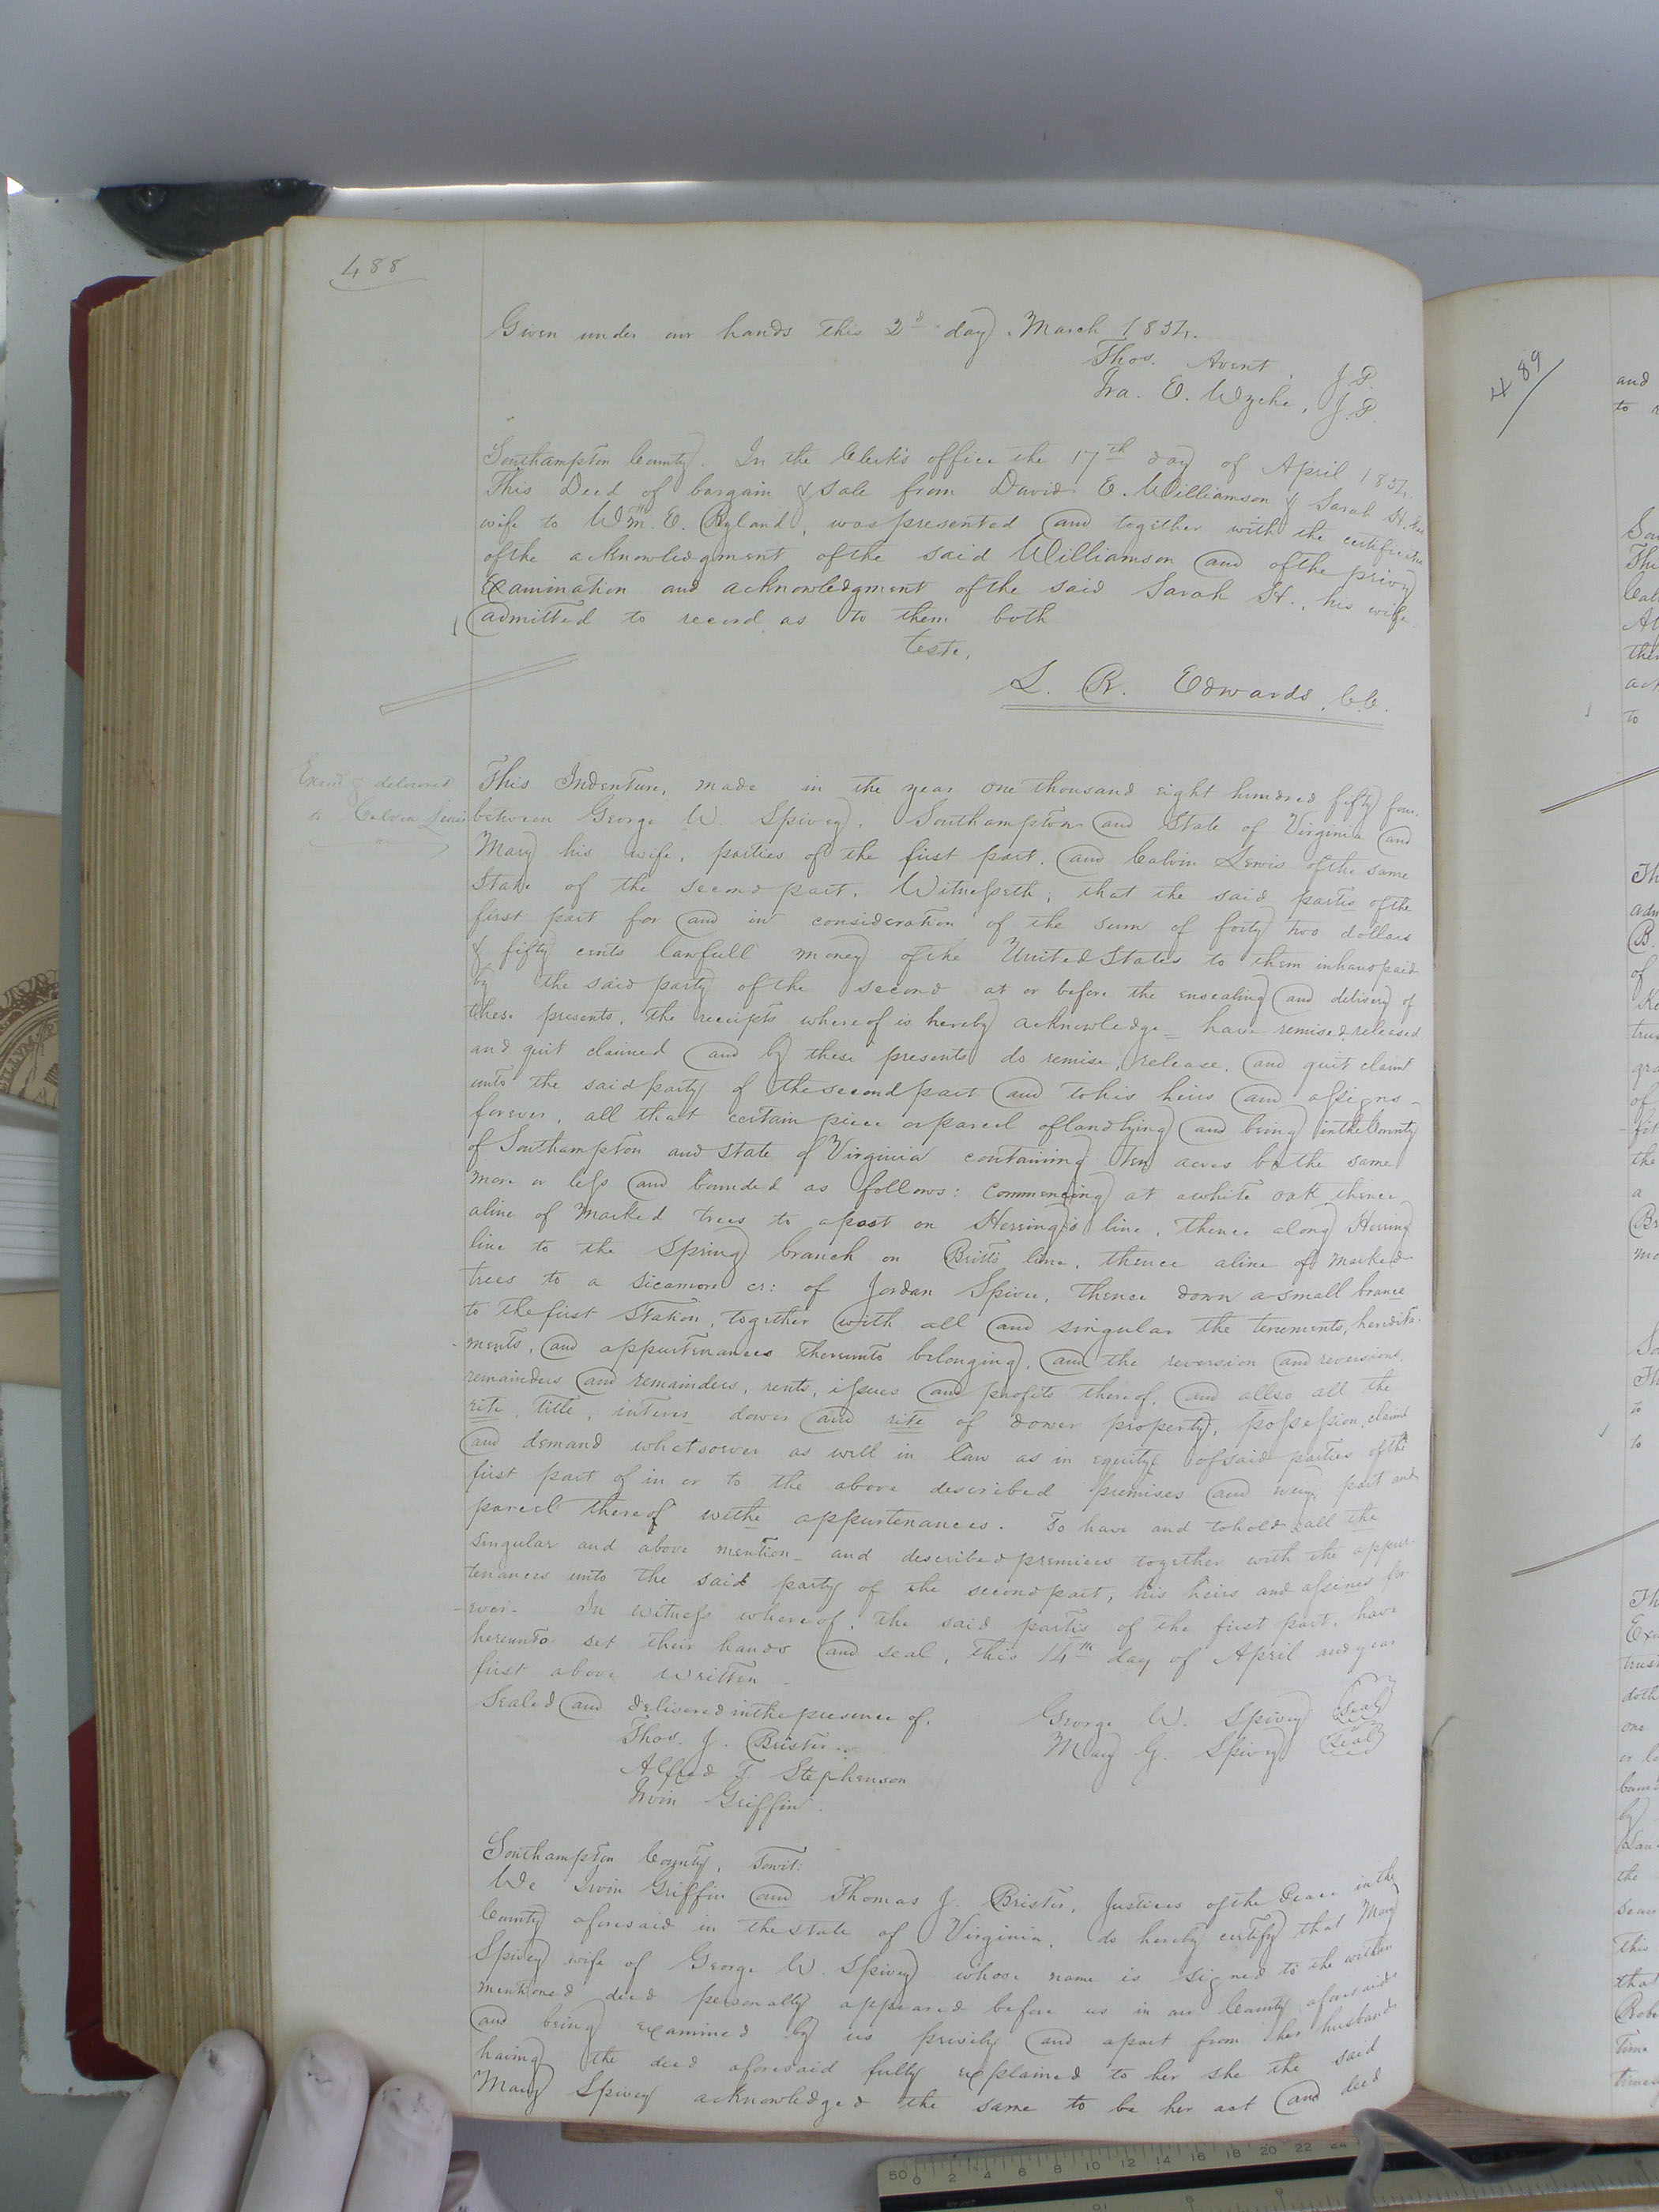 488
Given under our hands this 2d day, March 1854.
Thos. Avent, J.P.
Ira. E. Wyche, J.P.
Southampton County. In the Clerk's office the 17th day of April 1854.
This Deed of bargain & sale from David E. Williamson & Sarah H. his
wife to Wm. E. Ryland, was presented and together with the certificates
of the acknowledgment of the said Williamson and of the privy
Examination and acknowledgment of the said Sarah H., his wife
admitted to record as to them both
Teste,
L. R. Edwards, C.C.
Examd & delivered
to Calvin Lewis
This Indenture, made in the year one thousand eight hundred fifty four.
between George W. Spivey, Southampton and State of Virginia and
Mary his wife, parties of the first part, and Calvin Lewis of the same
State of the second part. Witnesseth; that the said partis of the
first part for and in consideration of the sum of forty two dollars
& fifty cents lawfull money of the United States to them in hand paid
by the said party of the second at or before the ensealing and delivery of
these presents, the receipts whereof is hereby acknowledge - have remised released
and quit claimed and by these presents do remise, release, and quit claim
unto the said party of the second part and to his heirs and assigns -
forever, all that certain piece or parcel of land lying and being in the County
of Southampton and state of Virginia containing ten acres be the same
more or less and bounded as follows: Commencing at a white oak thence
a line of marked trees to a post on Herring's line, thence along Herring
line to the Spring branch on Britts line, thence a line of marked
trees to a sicamore cr: of Jordan Spivee, thence down a small brance
to the first Station, together with all and singular the tenements, heredita-
ments, and appurtenances thereunto belonging, and the reversion and reversions,
remainders and remainders, rents, issues and profits thereof, and allso all the
rite, title, interes - dower and rite of dower property, possession, claim
and demand whatsoever as well in law as in equity of said parties of the
first part of in or to the above described premises and every part and
parcel thereof withe appurtenances. To have and to hold all the
singular and above mention - and described premices together with the appur-
tenances unto the said party of the second part, his heirs and assines for-
-ever. In witness whereof, the said partis of the first part, have
hereunto set their hands and seal, this 14th day of April and year
first above written -
Sealed and delivered in the presence of,
George W. Spivey (Seal)
Thos. J. Brister
Mary G. Spivey (Seal)
Alfred T. Stephenson
Irvin Griffin.
Southampton County, Towit:
We Irvin Griffin and Thomas J. Brister, Justices of the Peace in the
County aforesaid in the state of Virginia, do hereby certify that Mary
Spivey wife of George W. Spivey whose name is signed to the within
mentioned deed personally appeared before us in our County aforesaid
and being examined by us privily and apart from her husband
having the deed aforesaid fully explained to her she the said
Mary Spivey acknowledged the same to be her act and deed
489
and
to